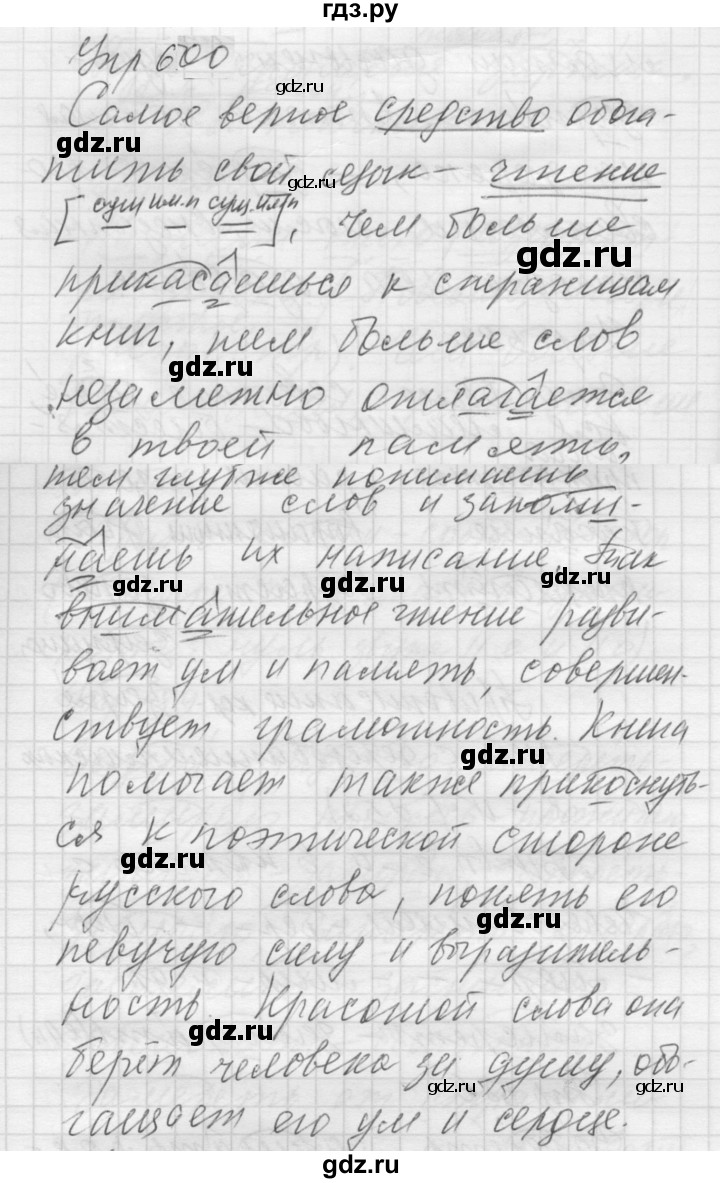 гдз.ру
Упр 600
gdz.ru
Самое верное средство обога-
gdz.ru
gdz.ru
тить свой язык – чтение
[сущ им.п – сущ. им.п], чем больше
gdz.ru
прикасаешься к страницам
книг, тем больше слов
gdz.ru
незаметно отлагается
gdz.ru
в твоей памяти,
тем глубже понимаешь
значение слов и запоми-
наешь их написание. Так
gdz.ru
gdz.ru
gdz.ru
внимательное чтение разви-
вает ум и память, совершен-
ствует грамотность. Книга
gdz.ru
помогает также прикоснуть-
ся к поэтической стороне
gdz.ru
русского слова, понять его
gdz.ru
певучую силу и выразитель-
ность. Красотой слова она
gdz.ru
берёт человека за душу, обо-
gdz.ru
gdz.ru
гащает его ум и сердце.
gdz.ru